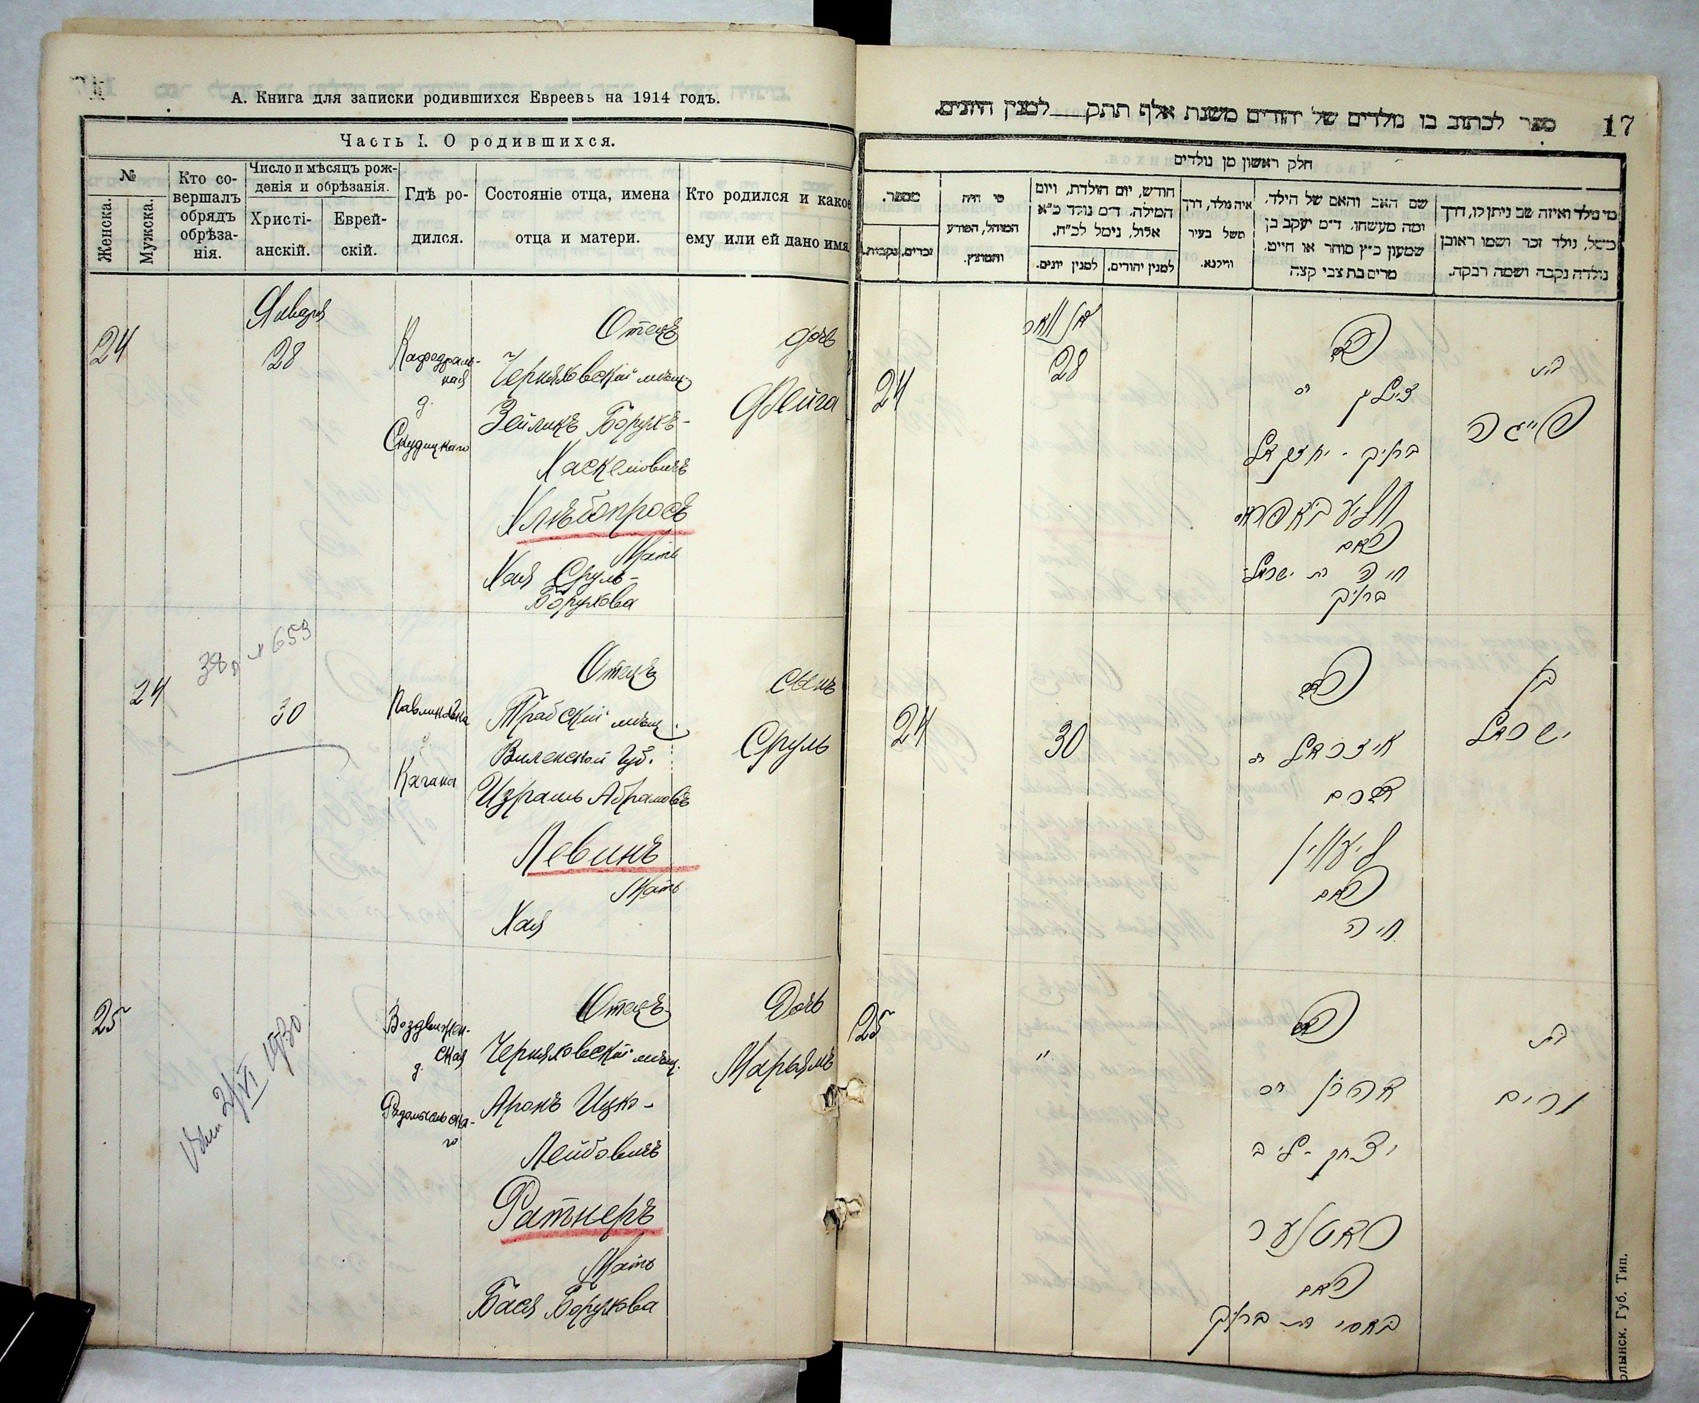 А. Книга для записки родившихся Евреевъ на 1914 годъ.
Часть I. О родившихся.
№
Женска.
Мужска.
Кто со-
вершалъ
обрядъ
обрѣза-
нія.
Число и мѣсяцъ рож-
денія и обрѣзанія.
Христі-
анскій.
Еврей-
скій.
Гдѣ ро-
дился.
Состояніе отца, имена
отца и матери.
Кто родился и какое
ему или ей дано имя
24
Января
28
Кафедраль-
ная
д.
Скудицкаго
Отецъ
Черняховскій мѣщ.
Зейликъ Борухъ-
Хаскелювичъ
Хлѣбопросъ
Мать
Хая Сруль-
Борухова
дочь
Фейга
24
30
Кагана
Отецъ
Трабскій мѣщ.
Виленской Губ.
Израиль Абрамовъ
Левинъ
Мать
Хая
сынъ
Сруль
25
Воздвижен-
ская
д.
Отецъ
Черняховскій мѣщ.
Аронъ Ицко-
Лейбовичъ
Ратнеръ
Мать
Бася Борухова
Дочь
Марьямъ
ספר לכתוב בו נולדים של יהודים משנת אלף תתק למנין היונים.
17
חלק ראשון מן נולדים
מספר.
זכרים.
נקבות.
מי היה
המוהל, הפורע
והמוצץ.
חודש, יום הולדת, ויום
המילה. ד״מ נולד כ״א
אלול, נימל לכ״ח.
למנין יונים.
למנין יהודים.
איה נולד, דרך
משל בעיר
ווילנא.
שם האב והאם של הילד.
ומה מעשהו. ד״מ יעקב בן
שמעון כ״ץ סוחר או חיים.
מרים בת צבי קצה
מי נולד ואיזה שם ניתן לו, דרך
משל, נולד זכר ושמו ראובן
נולדה נקבה ושמה רבקה.
24
יאנוואר
28
זעליג
ברוך - יחזקאל
חליעבאפראס
האם
חיה בת ישראל
ברוך
בת
פייגה
24
30
איזראל
אברם
לעווין
האם
חיה
בן
ישראל
25
"
אהרן
יצחק - לייב
ראטנער
האם
באסי בת ברוך
בת
מרים
олынск. Губ. Тип.